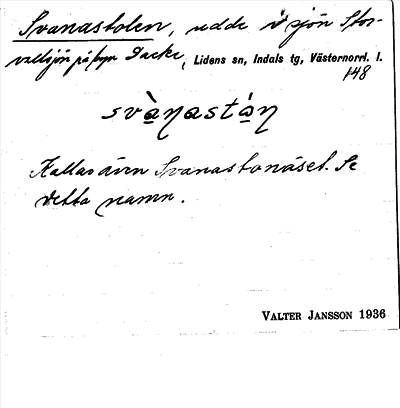 Svanastolen, udde i sjön Stor-
vallsjön på byn Dacke, Lidens sn, Indals tg, Västernorrl. l.
148
svànastán
Kallas även Svanastonäset. Se
detta namn.
VALTER JANSSON 1936